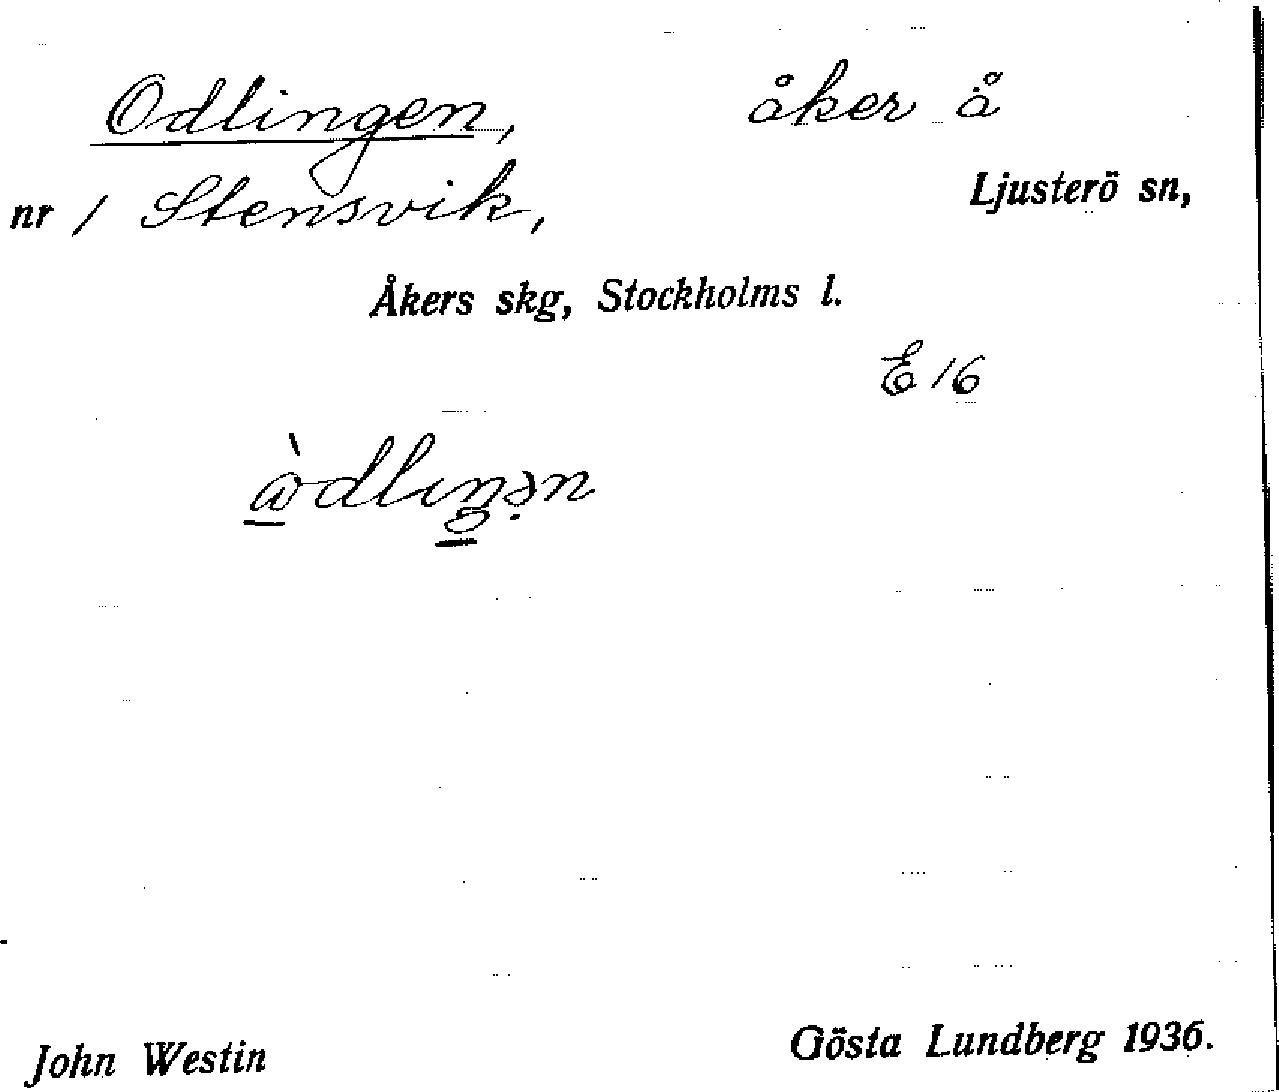 Odlingen, åker å
nr 1 Stensvik, Ljusterö sn,
Åkers skg, Stockholms l.
E 16
John Westin Gösta Lundberg 1936.